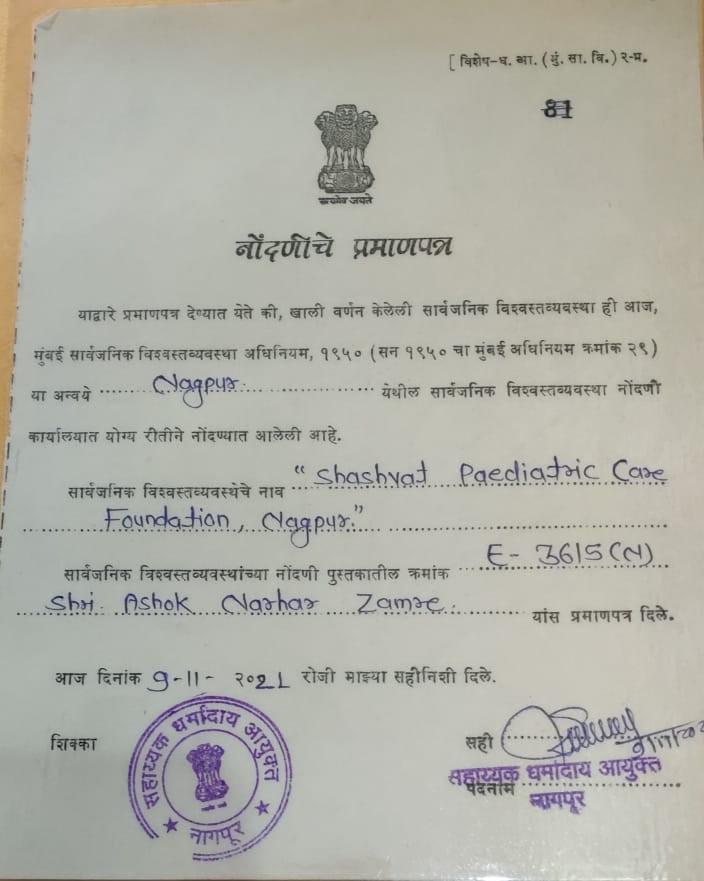 [ विशेष-ध. आ. (मुं. सा. वि.) २-म.
81
सत्यमेव जयते
नोंदणीचे प्रमाणपत्र
याद्वारे प्रमाणपत्र देण्यात येते की, खाली वर्णन केलेली सार्वजनिक विश्वस्तव्यवस्था ही आज,
मुंबई सार्वजनिक विश्वस्तव्यवस्था अधिनियम, १९५० (सन १९५० चा मुंबई अधिनियम क्रमांक २९)
या अन्वये Nagpur. येथील सार्वजनिक विश्वस्तव्यवस्था नोंदणी
कार्यालयात योग्य रीतीने नोंदण्यात आलेली आहे.
सार्वजनिक विश्वस्तव्यवस्थेचे नाव “Shashvat Paediatric Care
Foundation, Nagpur.”
सार्वजनिक विश्वस्तव्यवस्थांच्या नोंदणी पुस्तकातील क्रमांक E- 3615(N)
Shri. Ashok Narhar Zamre. यांस प्रमाणपत्र दिले.
आज दिनांक 9-11- २०21 रोजी माझ्या सहीनिशी दिले.
शिक्का
सहाय्यक धर्मादाय आयुक्त
नागपूर
सही
सहाय्यक धर्मादाय आयुक्त
पदनाम
नागपूर